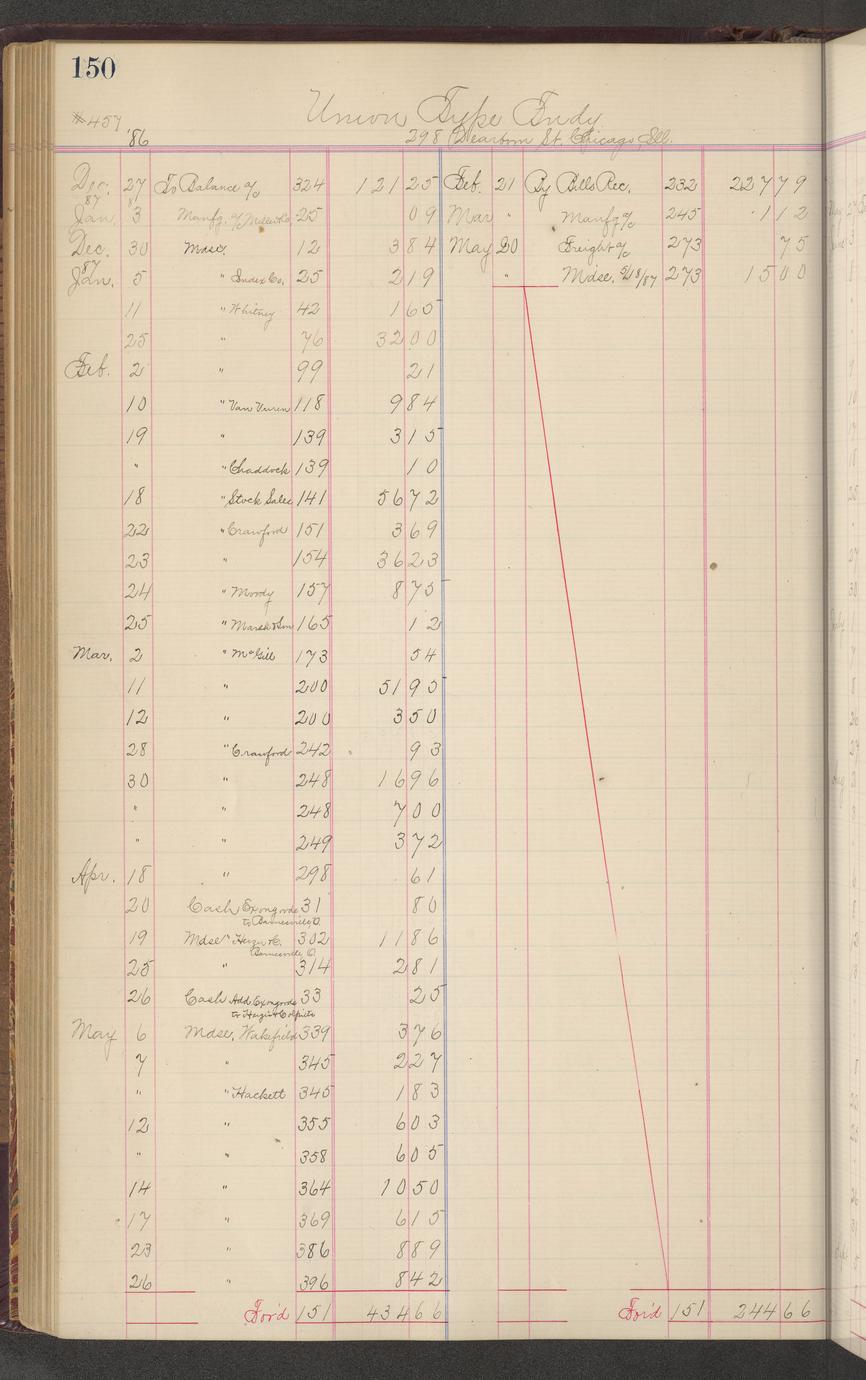 150
Union Type Fndy
#457
'86 298 Dearborn St. Chicago, Ill.
Dec. 27 To Balance a/c 324 121 25 Feb. 21 By Bills Rec. 232 227 79
'87
Jan. 3 Manfg. a/c 25 09 Mar " Manfg a/c 245 1 12
Dec. 30 Mdse. 12 3 84 May 20 Freight a/c 273 75
'87
Jan. 5 " Index Co. 25 2 19 " Mdse. 5/18/87 273 15 00
11 " Whitney 42 1 65
25 " 76 32 00
Feb. 2 " 99 21
10 " Van Vuren 118 9 84
19 " 139 3 15
" " Chaddock 139 10
18 " Stock Sales 141 56 72
22 " Crawford 151 3 69
23 " 154 36 23
24 " Moody 157 8 75
25 " Marsh & Son 165 12
Mar. 2 " McGill 173 54
11 " 200 51 95
12 " 200 3 50
28 " Crawford 242 93
30 " 248 16 96
" " 248 7 00
" " 249 3 72
Apr. 18 " 298 61
20 Cash Ex on goods 31 80
to Barnesville, O.
19 Mdse " 302 11 86
Barnesville, O.
25 " 314 2 81
26 Cash Add Ex on goods 33 25
May 6 Mdse. Wakefield 339 3 76
7 " 345 2 27
" " Hackett 345 1 83
12 " 355 6 03
" " 358 6 05
14 " 364 10 50
17 " 369 6 15
23 " 386 8 89
26 " 396 8 42
For'd 151 434 66 For'd 151 244 66